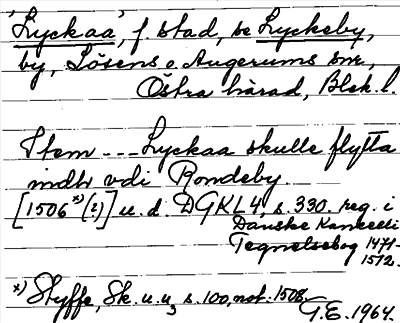 'Lyckaa', f. stad, se Lyckeby,
by, Lösens o. Augerums snr,
Östra härad, Blek. l.
Item --- Lyckaa skulle flytta
indh vdi Rondeby
[1506 x) (?)] u. d. DGKL 4, s. 330 reg. i
Danske Kancelli
Tegnelsebog 1471-
1572.
x) Styffe, Sk. u. u., s. 100, not. 1508.
G.E. 1964.